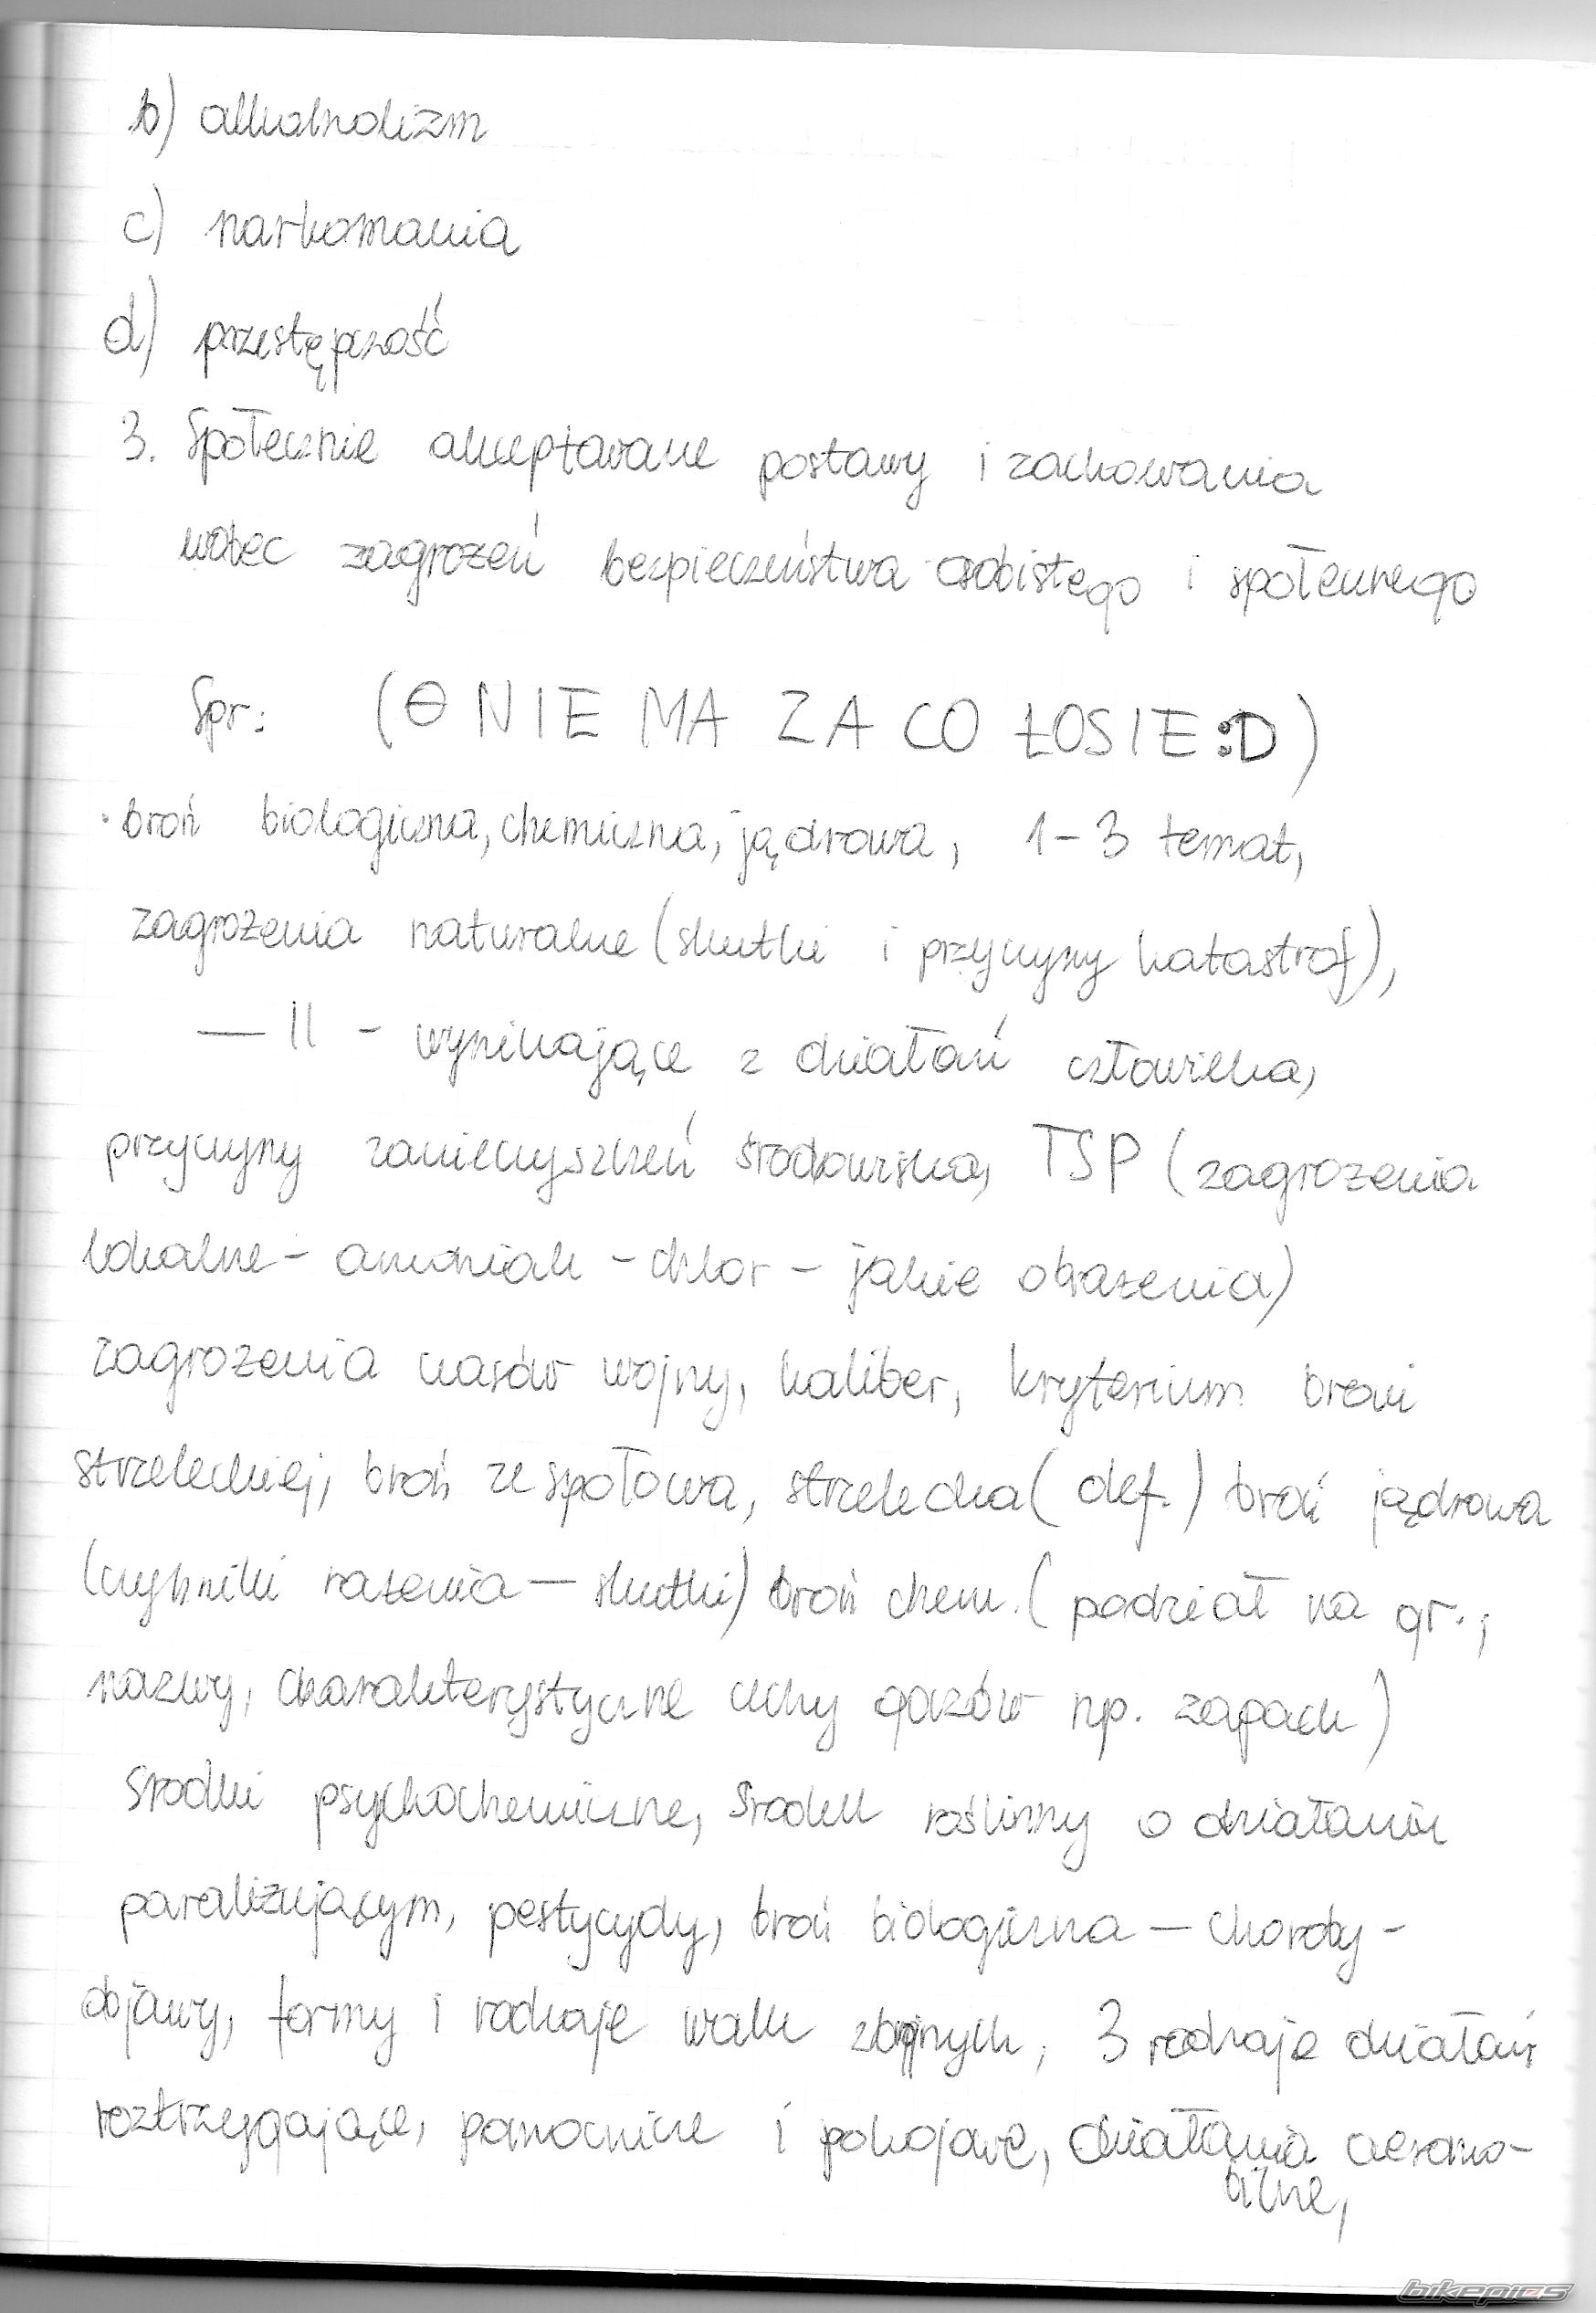 b) alkoholizm
c) narkomania
d) przestępczość
3. Społecznie akceptowane postawy i zachowania
wobec zagrożeń bezpieczeństwa osobistego i społecznego
Spr: (Θ NIE MA ZA CO ŁOSIE :D)
• broń biologiczna, chemiczna, jądrowa, 1-3 temat,
zagrożenia naturalne (skutki i przyczyny katastrof),
— || - wynikające z działań człowieka,
przyczyny zanieczyszczeń środowiska, TSP (zagrożenia
lokalne - amoniak - chlor - jakie obrażenia)
zagrożenia czasów wojny, kaliber, kryterium broni
strzeleckiej, broń zespołowa, strzelecka (def.) broń jądrowa
(czynniki rażenia — skutki) broń chem. (podział na gr.,
nazwy, charakterystyczne cechy gazów np. zapach)
środki psychochemiczne, środek roślinny o działaniu
paraliżującym, pestycydy, broń biologiczna — choroby -
objawy, formy i rodzaje walk zbrojnych, 3 rodzaje działań
roztrzygające, pomocnicze i pokojowe, działania aeromo-
bilne,
bikepics